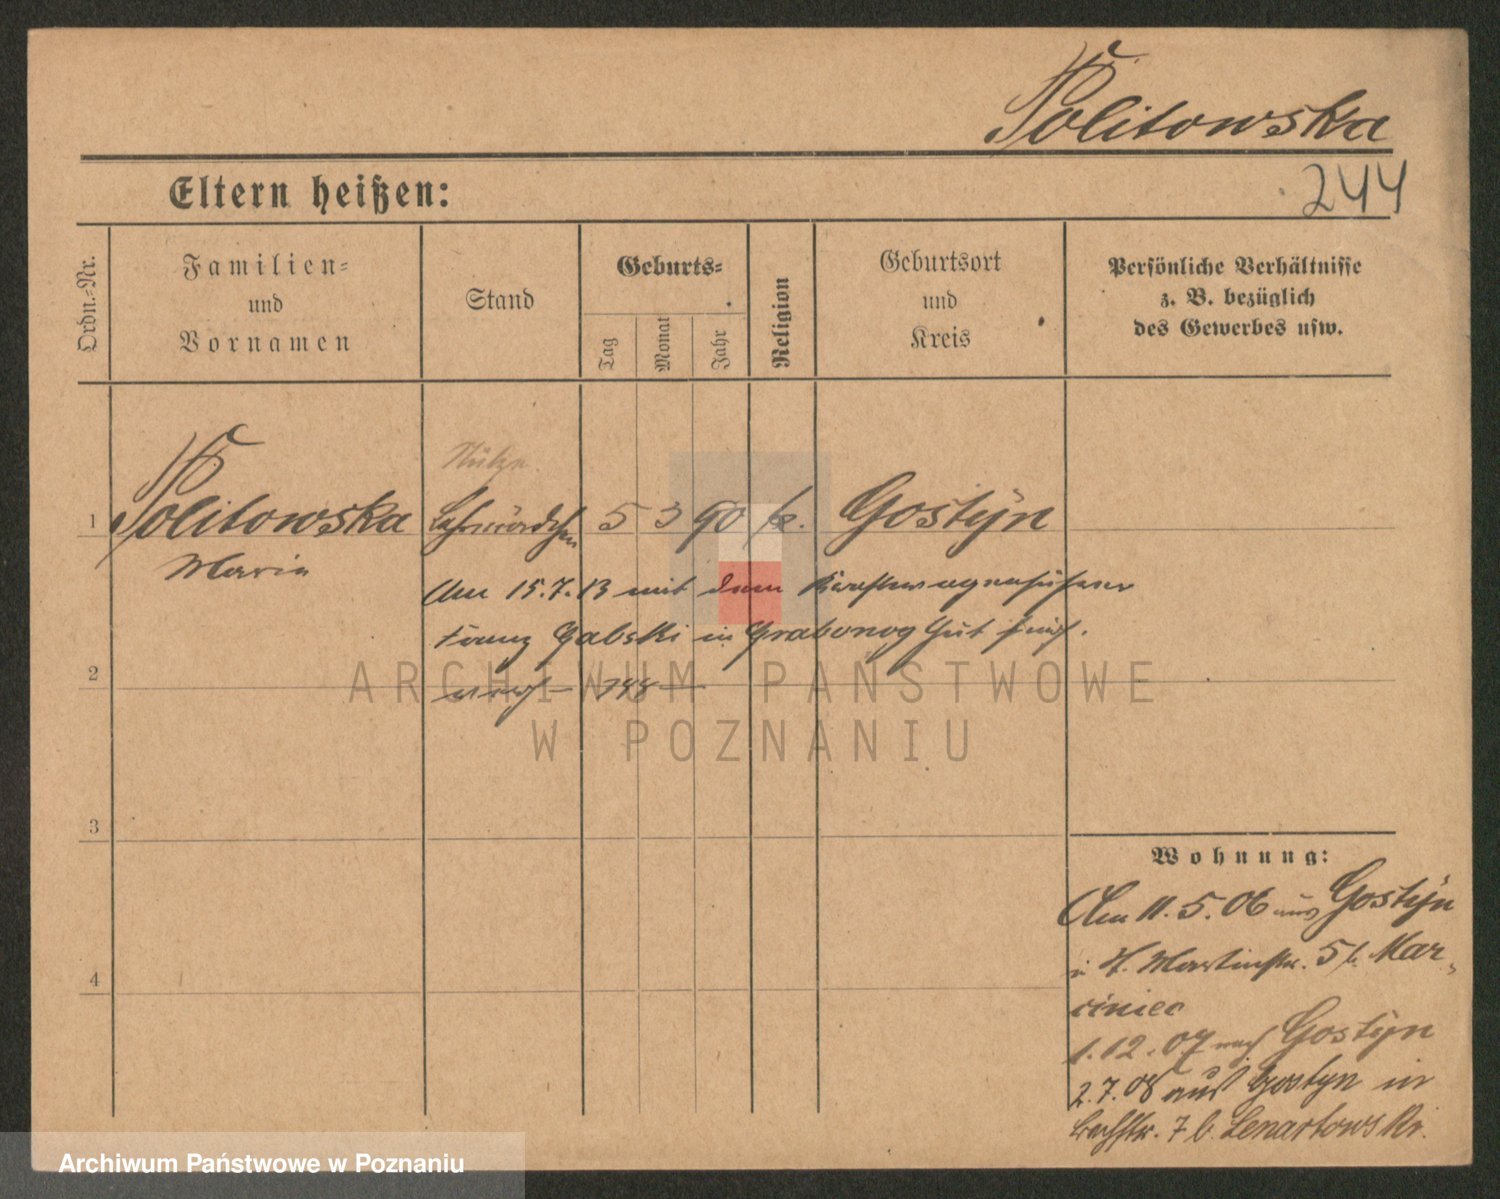 Politowska
244
Eltern heißen:
Ordn.-Nr.
Familien-
und
Vornamen
Stand
Geburts-
Tag
Monat
Jahr
Religion
Geburtsort
und
Kreis
Persönliche Verhältnisse
z. B. bezüglich
des Gewerbes usw.
Stütze
1 Politowska Lehrmädchen 5 3 90 k. Gostÿn
Maria
Am 15.7.13 mit dem Kraftwagenführer
Franz Gabski in Grabonog Gut
2
748
3
4
Wohnung:
Am 11.5.06 aus Gostÿn
in St. Martinstr. 5 b. Mar-
ciniec
1.12.07 nach Gostÿn
2.7.08 aus Gostyn in
Bachstr. 7 b. Lenartowski.
ARCHIWUM PAŃSTWOWE
W POZNANIU
Archiwum Państwowe w Poznaniu